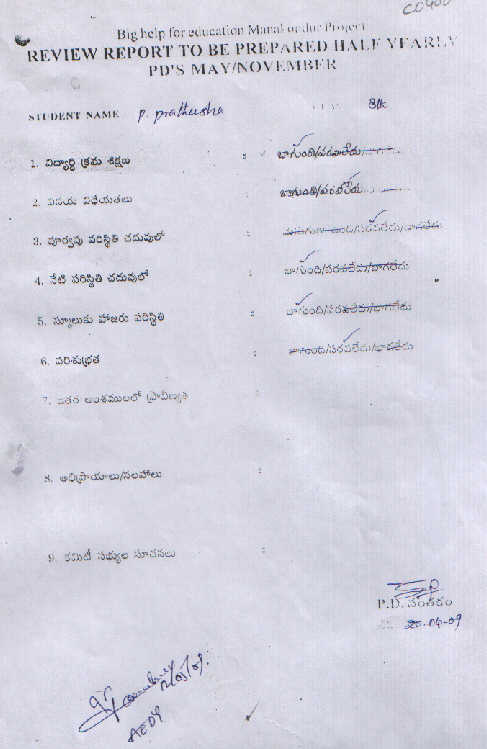 CO400
Big help for education Manalondur Project
REVIEW REPORT TO BE PREPARED HALF YEARLY
PD'S MAY/NOVEMBER
STUDENT NAME P. prathusha 8th
1. విద్యార్థి క్రమ శిక్షణ : బాగుంది/పరవాలేదు/
2. వినయ విధేయతలు : బాగుంది/పరవాలేదు
3. పూర్వపు పరిస్థితి చదువులో :
4. నేటి పరిస్థితి చదువులో : బాగుంది/పరవలేదు/బాగలేదు
5. స్కూలుకు హాజరు పరిస్థితి : బాగుంది/పరవలేదు/బాగలేదు
6. పరిశుభ్రత : బాగుంది/పరవలేదు/బాగలేదు
7. ఇతర అంశములలో ప్రావీణ్యత
8. అభిప్రాయాలు/సలహాలు :
9. కమిటీ సభ్యుల సూచనలు :
P.D. సంతకం
20-04-09
AEDY